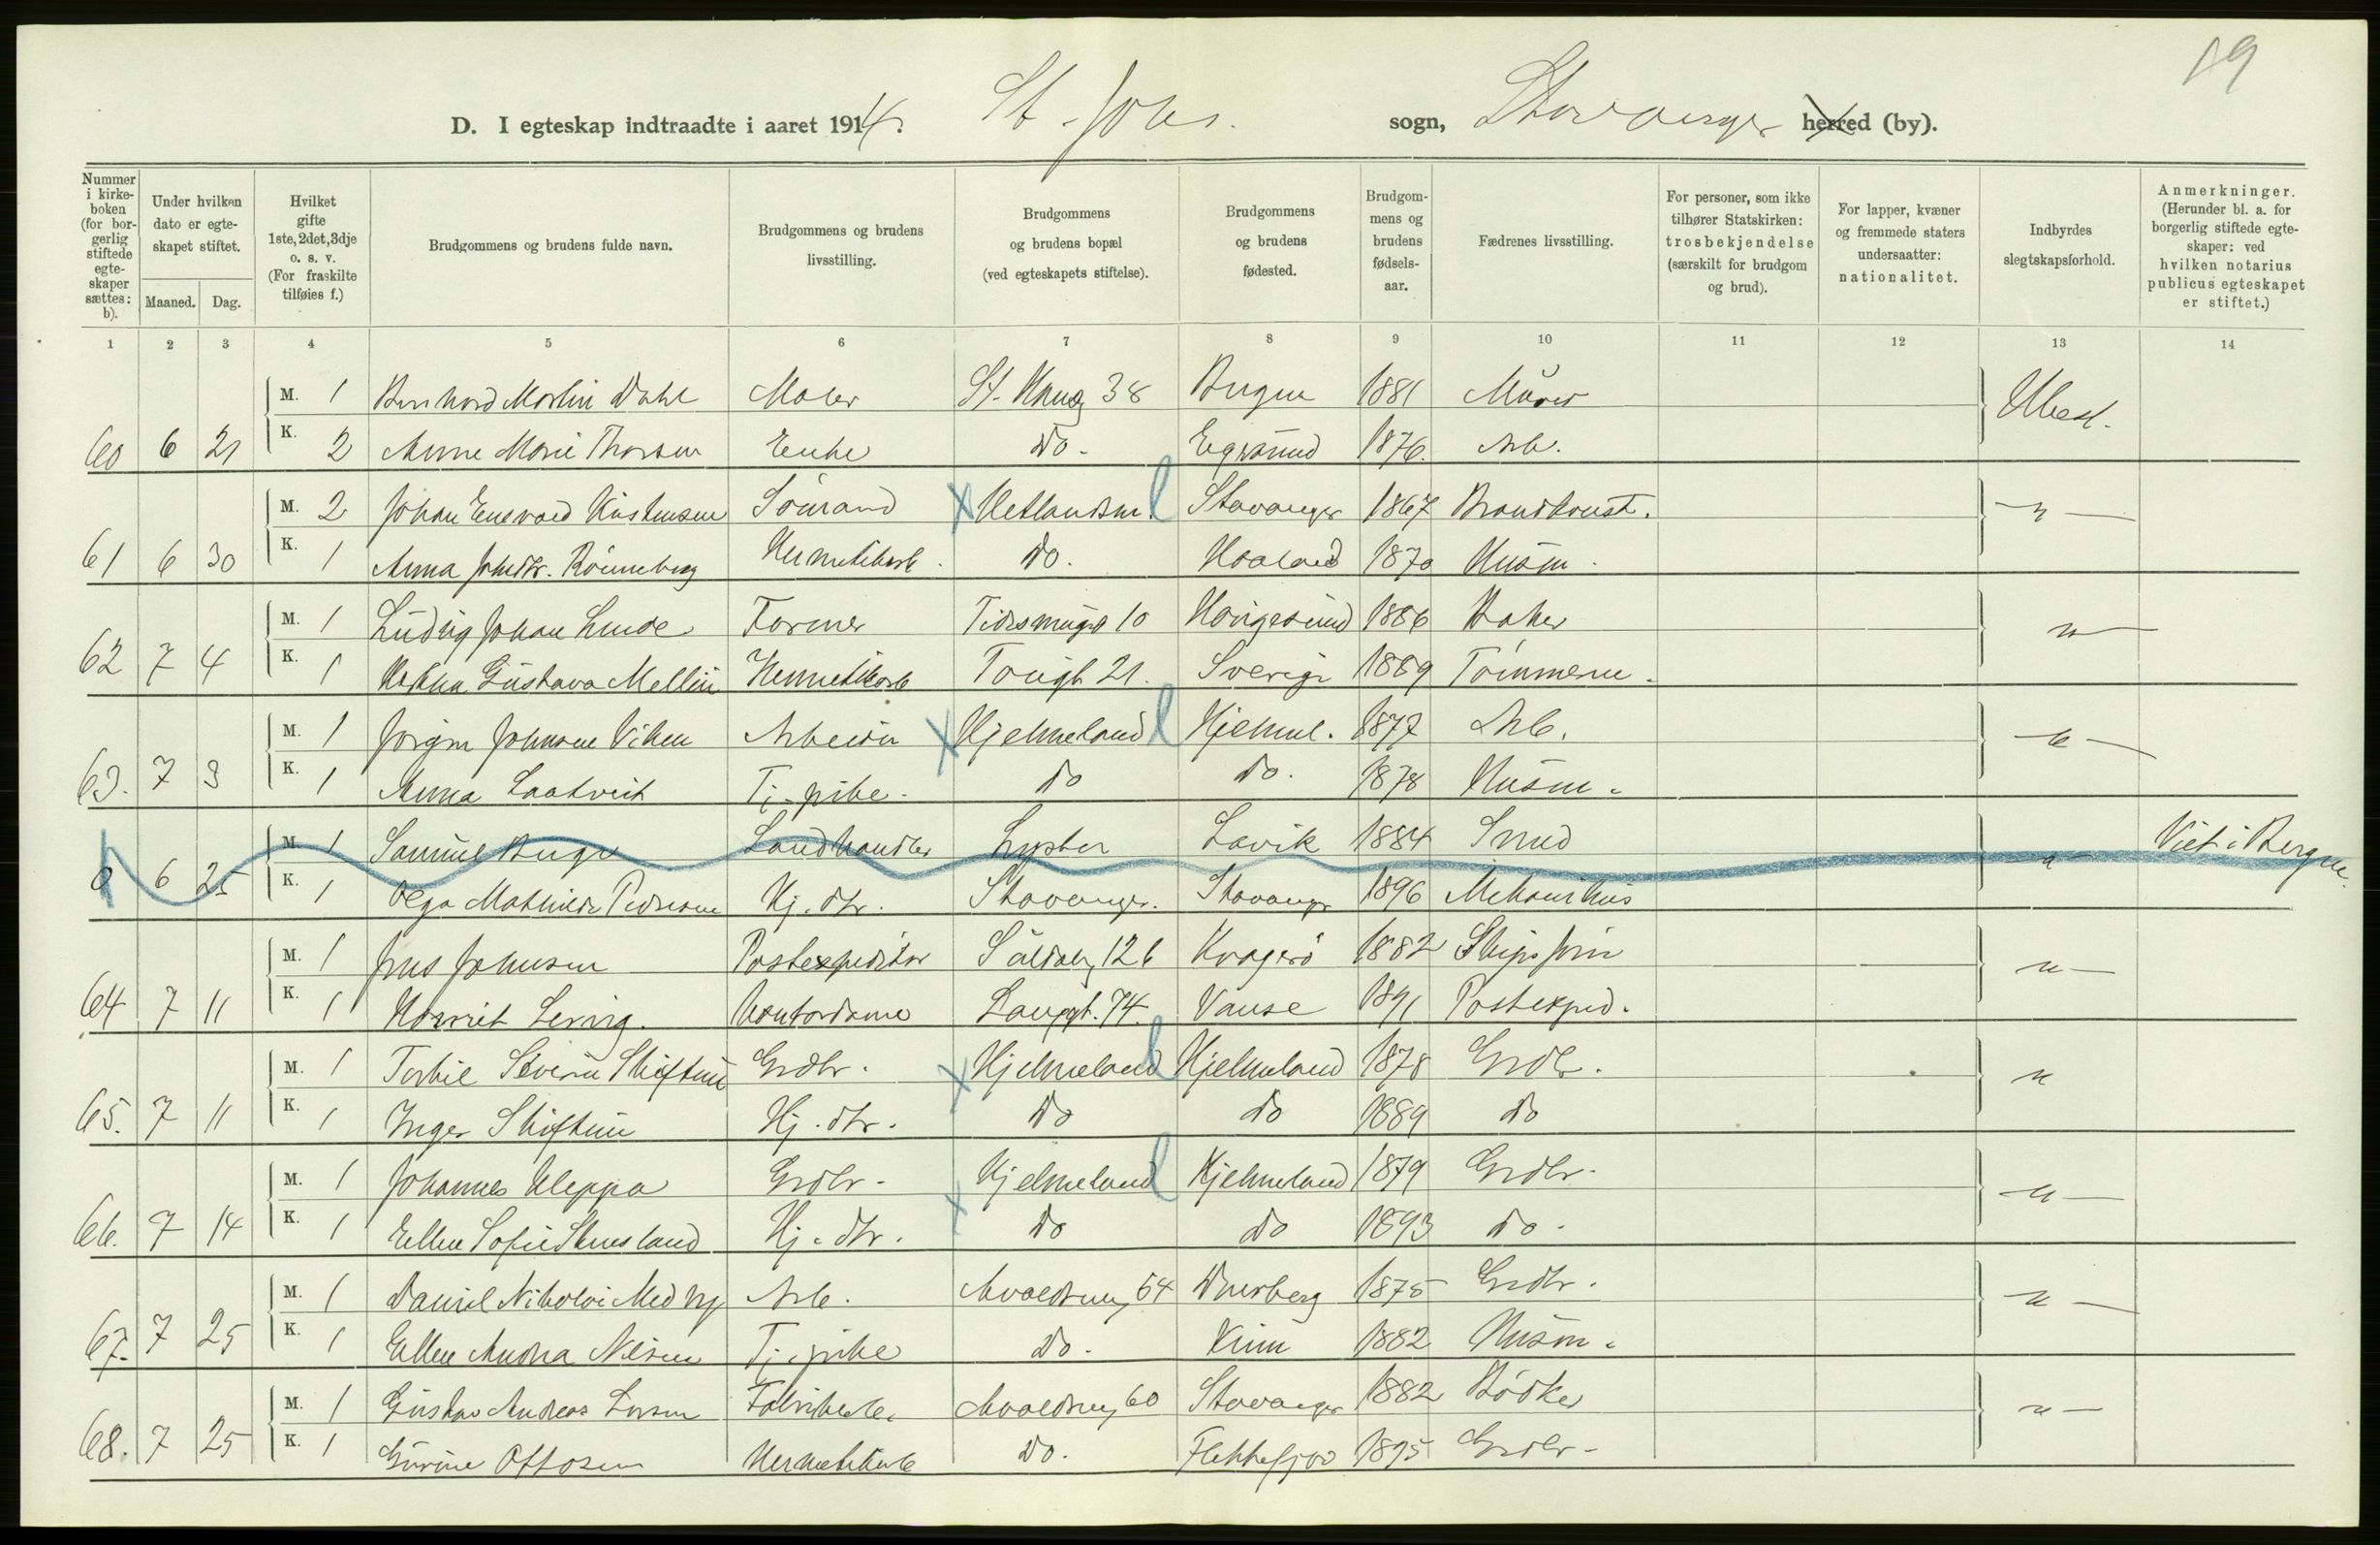 19
D. I egteskap indtraadte i aaret 1914. St. Johs. sogn, Stavanger herred (by).
Nummer i kirkeboken (for borgerlig stiftede egteskaper sættes: b).
Under hvilken dato er egteskapet stiftet.
Maaned. Dag.
Hvilket gifte 1ste, 2det, 3dje o. s. v. (For fraskilte tilføies f.)
Brudgommens og brudens fulde navn.
Brudgommens og brudens livsstilling.
Brudgommens og brudens bopæl (ved egteskapets stiftelse).
Brudgommens og brudens fødested.
Brudgommens og brudens fødselsaar.
Fædrenes livsstilling.
For personer, som ikke tilhører Statskirken: trosbekjendelse (særskilt for brudgom og brud).
For lapper, kvæner og fremmede staters undersaatter: nationalitet.
Indbyrdes slegtskapsforhold.
Anmerkninger. (Herunder bl. a. for borgerlig stiftede egteskaper: ved hvilken notarius publicus egteskapet er stiftet.)
1 2 3 4 5 6 7 8 9 10 11 12 13 14
M. 1 Bernhard Martin Dahl Maler St. Haug 38 Bergen 1881 Murer Ubesl.
60 6 21 K. 2 Anne Marie Thorsen Enke Do. Egersund 1876. Arb.
M. 2 Johan Enevald Kristensen Sömand Hetlandsm. Stavanger 1867 Brandkonst. "
61 6 30 K. 1 Anna Johsdtr. Rönneberg Hermetikarb. Do. Haaland 1870 Husm.
M. 1 Ludvig Johan Lunde Former Tidemansgt 10 Haugesund 1886 Baker "
62 7 4 K. 1 Gustava Mellin Hermetikarb Tougt 21. Sverige 1889 Tömmerm.
M. 1 Jörgen Johnsen Viken Arbeider Hjelmeland Hjelmel. 1877 Arb. "
63. 7 3 K. 1 Anna Laatveit Tj. pike. Do Do. 1878 Husm.
M. 1 Samuel Berge Landhandler Lyster Lavik 1884 Smed " Viet i Bergen.
0 6 25 K. 1 Olga Mathilde Pedersen Hj. dtr. Stavanger. Stavanger 1896 Mekanikus
M. 1 Jens Johnsen Postexpeditör 126 Kragerö 1882 Skipsförer "
64 7 11 K. 1 Harriet Lervig. Kontordame Langgt. 74. Vanse 1891 Postexped.
M. 1 Torkil Severin Skiftun Grdbr. Hjelmeland Hjelmeland 1878 Grdbr. "
65. 7 11 K. 1 Inger Skiftun Hj. dtr. Do Do 1889 Do
M. 1 Johannes Kleppa Grdbr. Hjelmeland Hjelmeland 1879 Grdbr. "
66. 7 14 K. 1 Ellen Sofie Stensland Hj. dtr. Do Do 1893 Do.
M. 1 Daniel Nikolai Medby Arb. Avaldsng 54 Dverberg 1875 Grdbr. "
67. 7 25 K. 1 Ellen Andrea Nilsen Tj. pike Do. Kinn 1882 Husm.
M. 1 Gustav Andreas Larsen Fabrikarb. Avaldsng 60 Stavanger 1882 Bödker "
68. 7 25 K. 1 Gurine Ottosen Hermetikarb Do. Flekkefjord 1895 Grdbr.